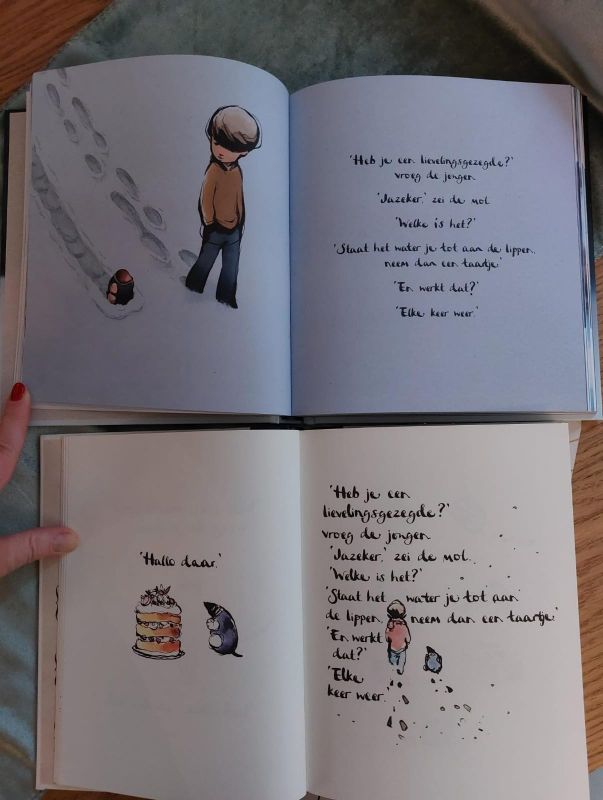 'Heb je een lievelingsgezegde?'
vroeg de jongen.
'Jazeker,' zei de mol.
'Welke is het?'
'Staat het water je tot aan de lippen,
neem dan een taartje.'
'En werkt dat?'
'Elke keer weer.'
'Hallo daar.'
'Heb je een
lievelingsgezegde?'
vroeg de jongen.
'Jazeker,' zei de mol.
'Welke is het?'
'Staat het water je tot aan
de lippen, neem dan een taartje.'
'En werkt
dat?'
'Elke
keer weer.'